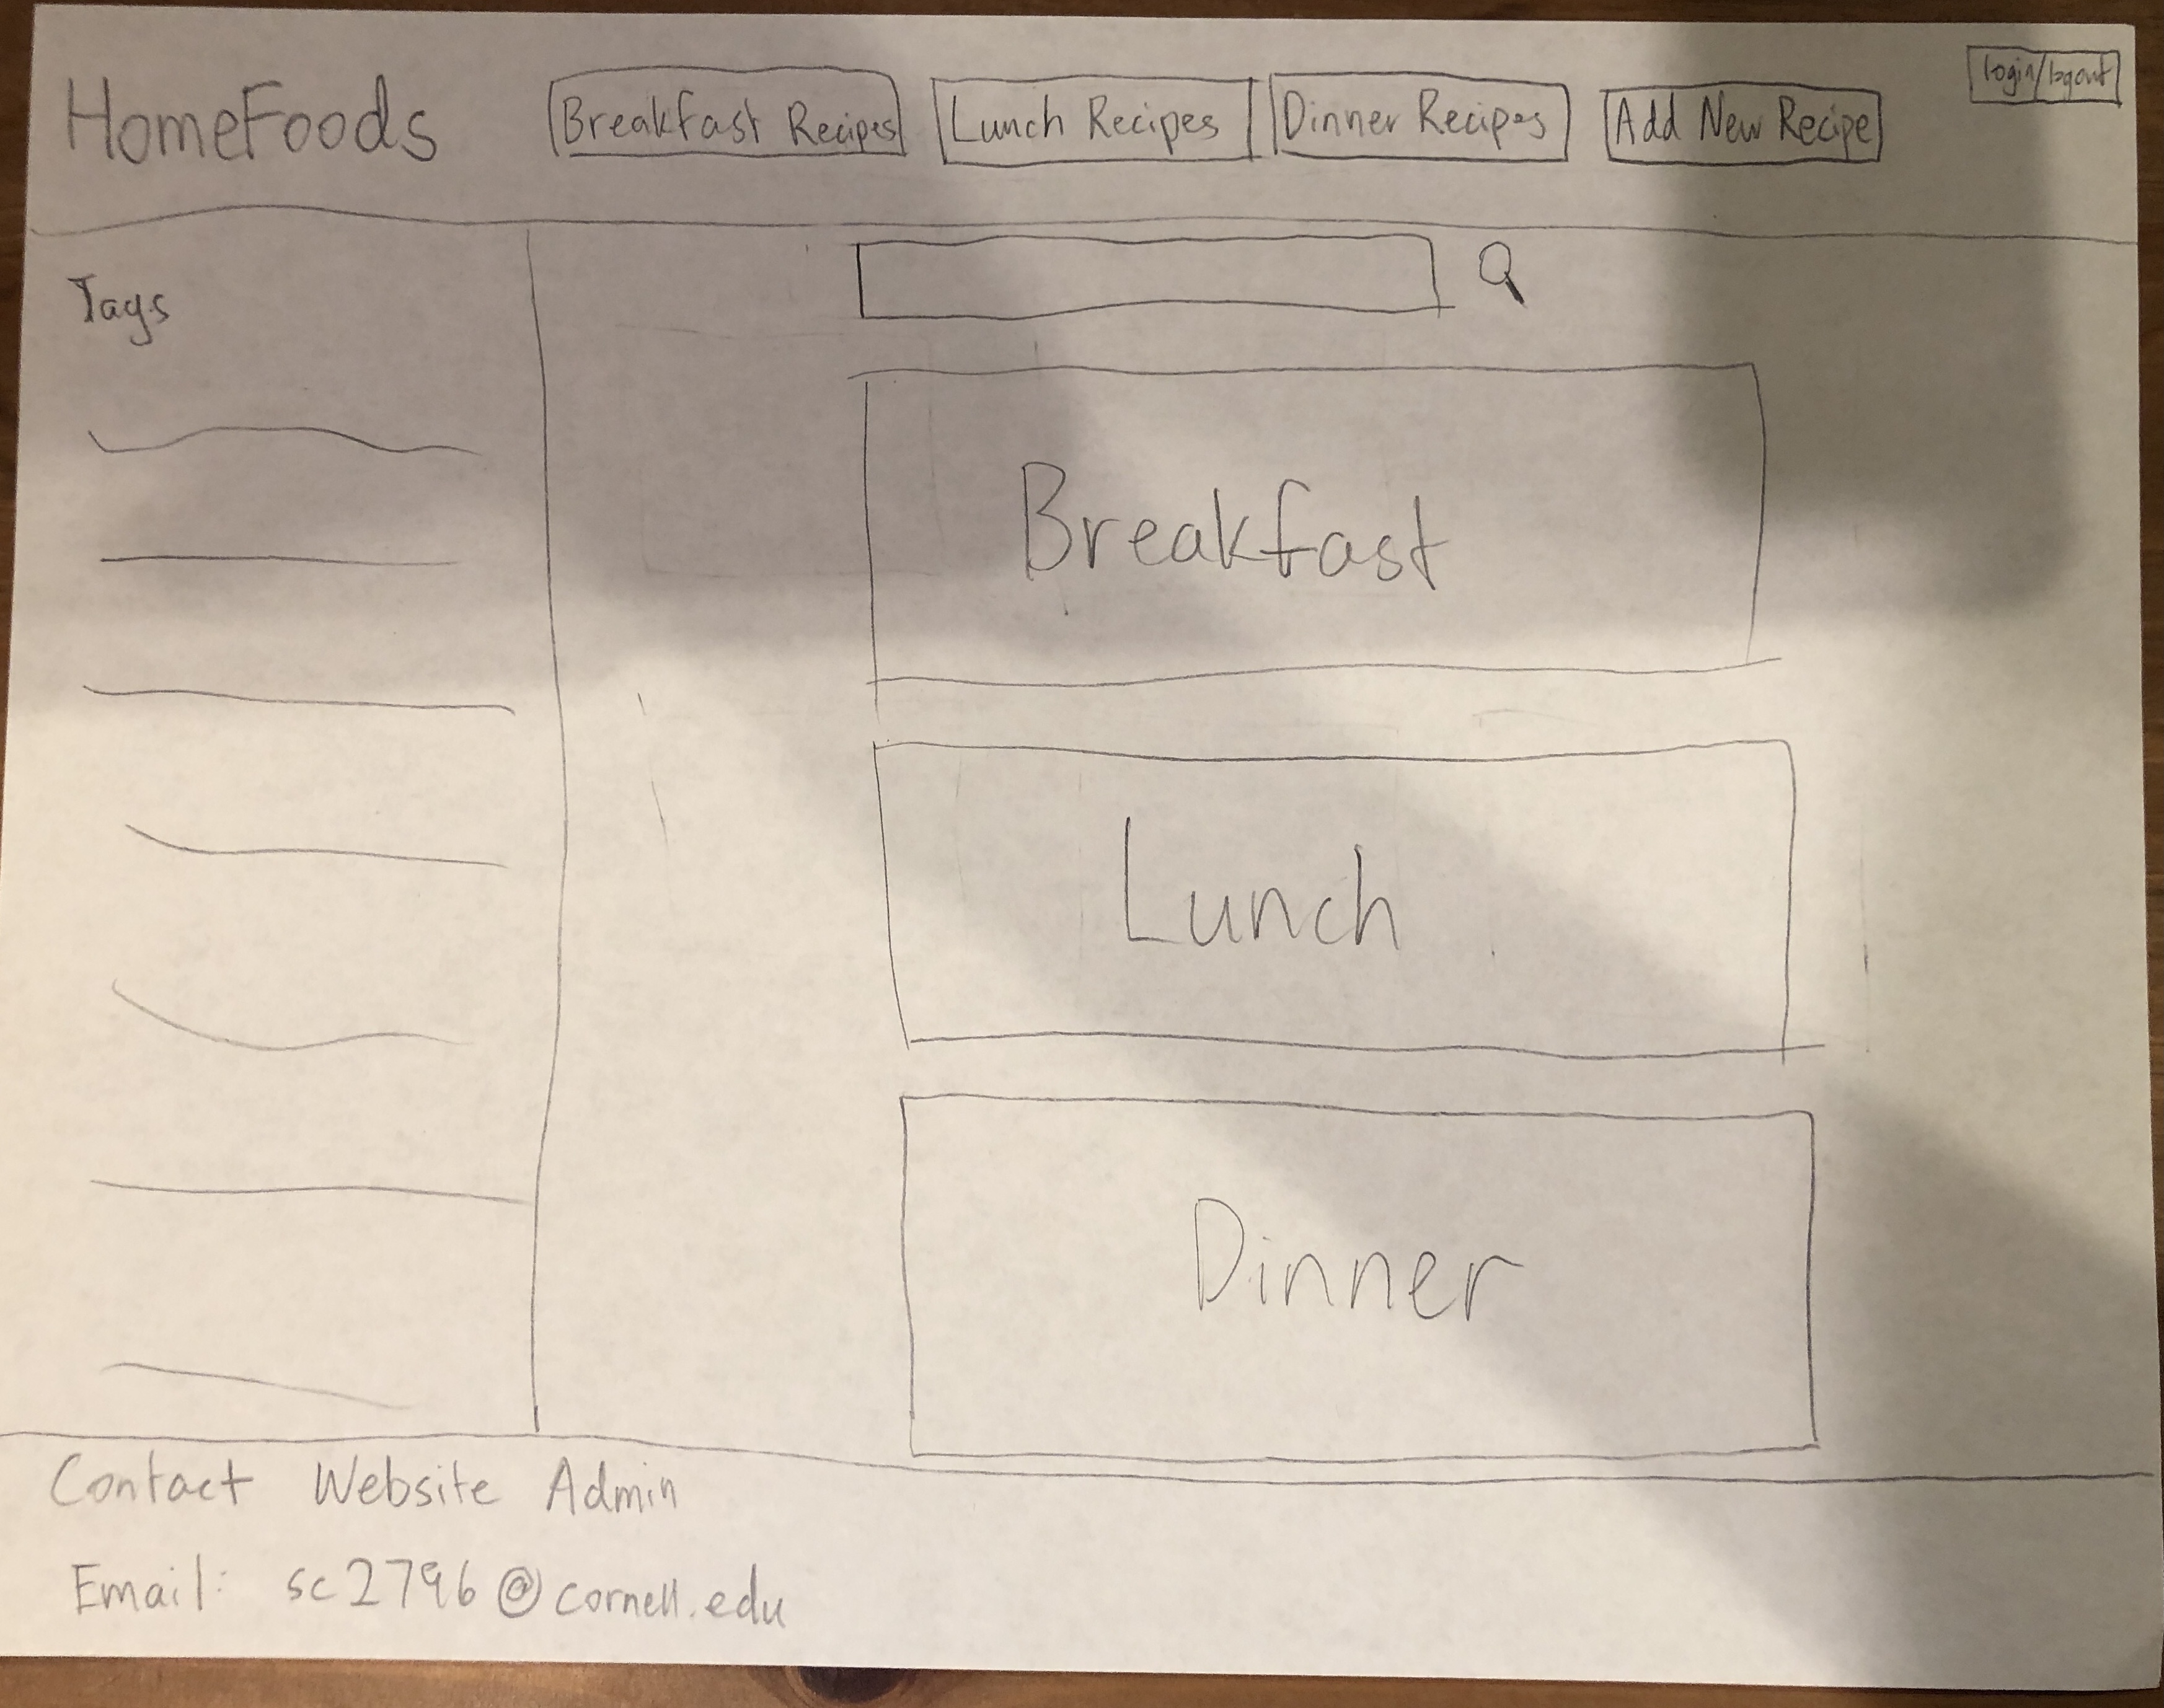 HomeFoods Breakfast Recipes Lunch Recipes Dinner Recipes Add New Recipe login/logout
Tags
Breakfast
Lunch
Dinner
Contact Website Admin
Email: sc2796@cornell.edu